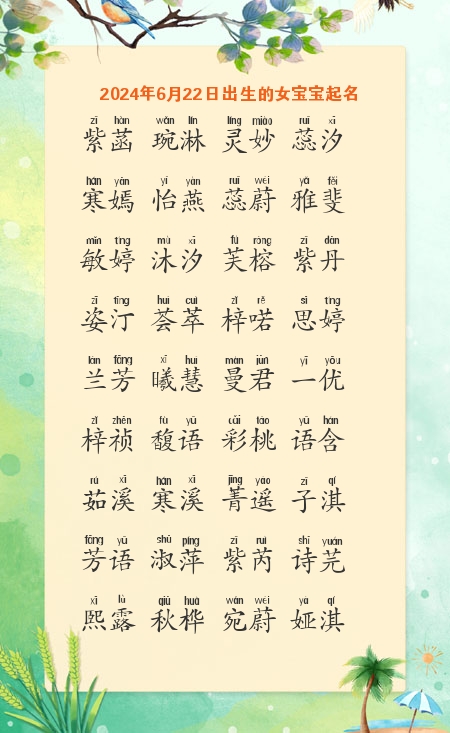 2024年6月22日出生的女宝宝起名
zǐ hàn wǎn lín líng miào ruǐ xī
紫菡 琬淋 灵妙 蕊汐
hán yān yí yàn ruǐ wèi yǎ fěi
寒嫣 怡燕 蕊蔚 雅斐
mǐn tíng mù xī fú róng zǐ dān
敏婷 沐汐 芙榕 紫丹
zī tīng huì cuì zǐ rě sī tíng
姿汀 荟萃 梓喏 思婷
lán fāng xī huì màn jūn yī yōu
兰芳 曦慧 曼君 一优
zǐ zhēn fù yǔ cǎi táo yǔ hán
梓祯 馥语 彩桃 语含
rú xī hán xī jīng yáo zǐ qí
茹溪 寒溪 菁遥 子淇
fāng yǔ shū píng zǐ ruì shī yuán
芳语 淑萍 紫芮 诗芫
xī lù qiū huà wǎn wèi yà qí
熙露 秋桦 宛蔚 娅淇